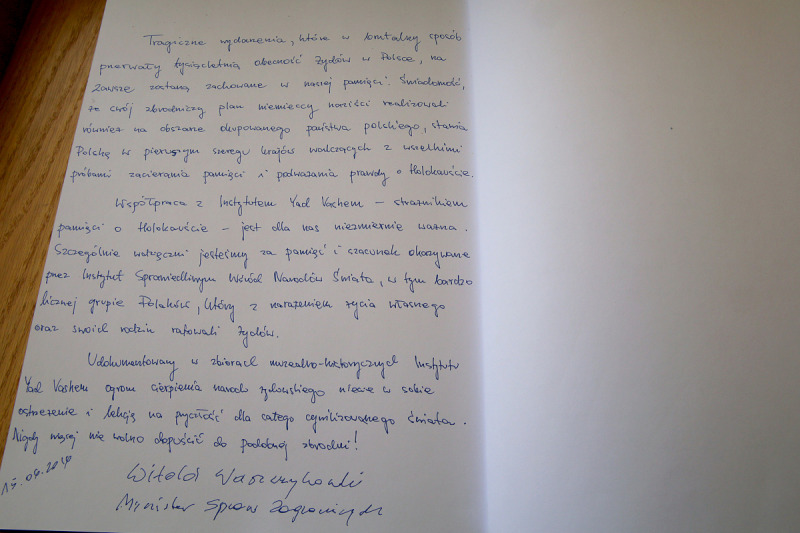 Tragiczne wydarzenia, które w brutalny sposób
przerwały tysiącletnią obecność Żydów w Polsce, na
zawsze zostaną zachowane w naszej pamięci. Świadomość,
że swój zbrodniczy plan niemieccy naziści realizowali
również na obszarze okupowanego państwa polskiego, stawia
Polskę w pierwszym szeregu krajów walczących z wszelkimi
próbami zacierania pamięci i podważania prawdy o Holokauście.
Współpraca z Instytutem Yad Vashem – strażnikiem
pamięci o Holokauście – jest dla nas niezmiernie ważna.
Szczególnie wdzięczni jesteśmy za pamięć i szacunek okazywane
przez Instytut Sprawiedliwym Wśród Narodów Świata, w tym bardzo
licznej grupie Polaków, którzy z narażeniem życia własnego
oraz swoich rodzin ratowali Żydów.
Udokumentowany w zbiorach muzealno-historycznych Instytutu
Yad Vashem ogrom cierpienia narodu żydowskiego niesie w sobie
ostrzeżenie i lekcję na przyszłość dla całego cywilizowanego świata.
Nigdy więcej nie wolno dopuścić do podobnej zbrodni!
Witold Waszczykowski
Minister Spraw Zagranicznych